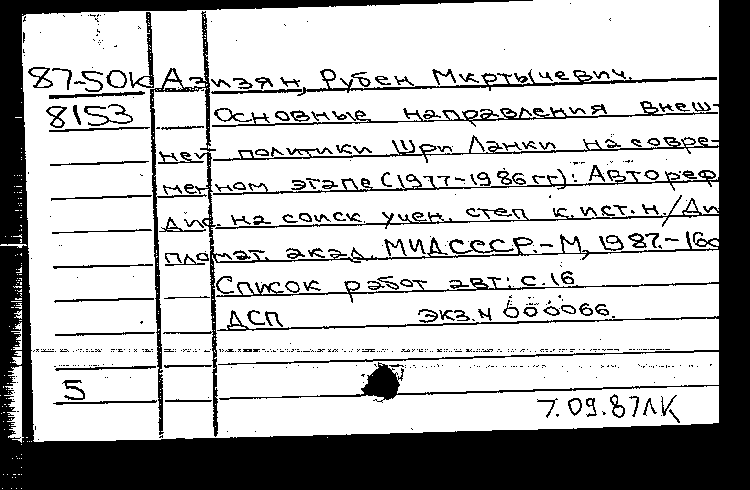 87-50к Азизян, Рубен Мкртычевич.
8153 Основные направления внеш-
ней политики Шри Ланки на совре-
менном этапе (1977-1986 гг): Автореф.
дис. на соиск учен. степ к. ист. н. / Ди
пломат. акад. МИД СССР. - М, 1987. - 16с
Список работ авт: с. 16
ДСП экз. N 000066.
5
7.09.87ЛК